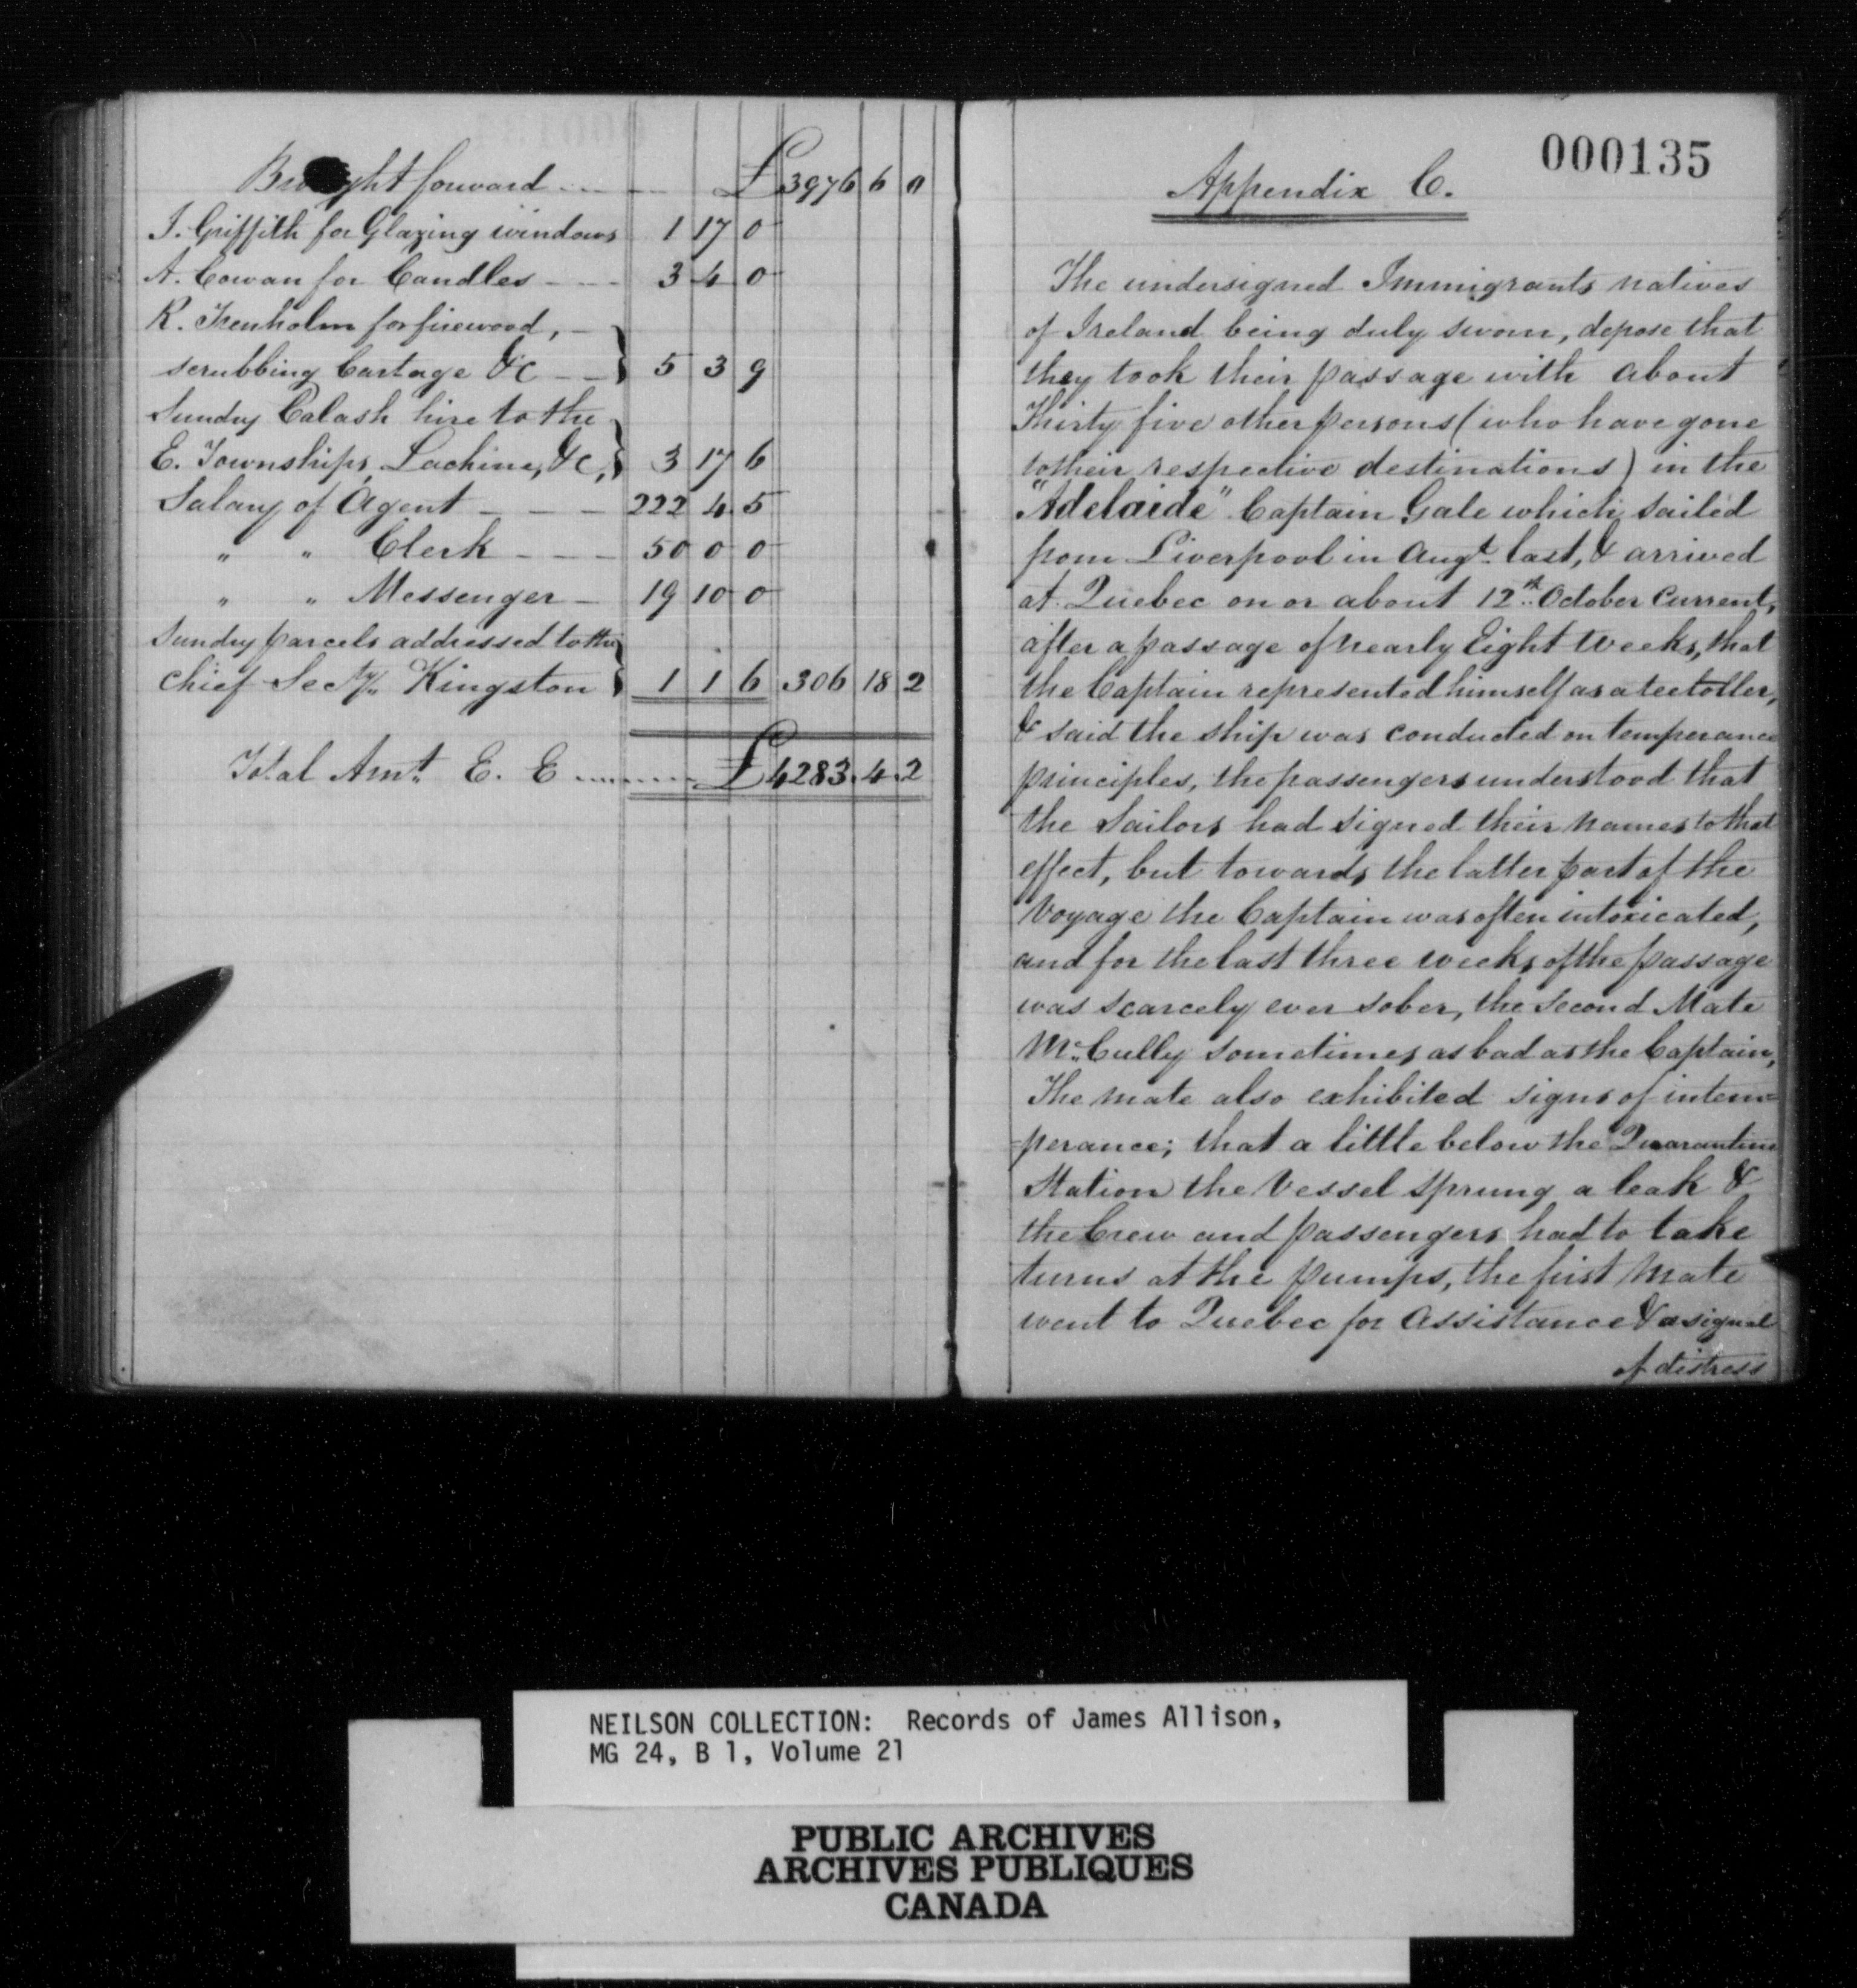 Brought forward ... £3976 6 0
J. Griffith for Glazing windows 1 17 0
A. Cowan for Candles - - - 3 4 0
R. Trenholm for firewood, -
scrubbing Cartage &c - - } 5 3 9
Sundry Calash hire to the
E. Townships, Lachine, &c, } 3 17 6
Salary of Agent - - - 222 4 5
" " Clerk - - - 50 0 0
" " Messenger - 19 10 0
Sundry parcels addressed to the
Chief Secty. Kingston } 1 1 6 306 18 2
Total Amt. E. E ........ £4283.4.2
000135
Appendix C.
The undersigned Immigrants natives
of Ireland being duly sworn, depose that
they took their passage with about
Thirty five other persons (who have gone
to their respective destinations) in the
"Adelaide" Captain Gale which sailed
from Liverpool in Augt. last, & arrived
at Quebec on or about 12th October Current,
after a passage of nearly Eight Weeks, that
the Captain represented himself as a teetotller,
& said the ship was conducted on temperance
principles, the passengers understood that
the Sailors had signed their names to that
effect, but towards the latter part of the
Voyage the Captain was often intoxicated,
and for the last three weeks of the passage
was scarcely ever sober, the Second Mate
McCully sometimes as bad as the Captain,
The mate also exhibited signs of intem=
=perance; that a little below the Quarantine
Station the Vessel sprung a leak &
the Crew and passengers had to take
turns at the pumps, the first Mate
went to Quebec for Assistance & a signal
of distress
NEILSON COLLECTION: Records of James Allison,
MG 24, B 1, Volume 21
PUBLIC ARCHIVES
ARCHIVES PUBLIQUES
CANADA